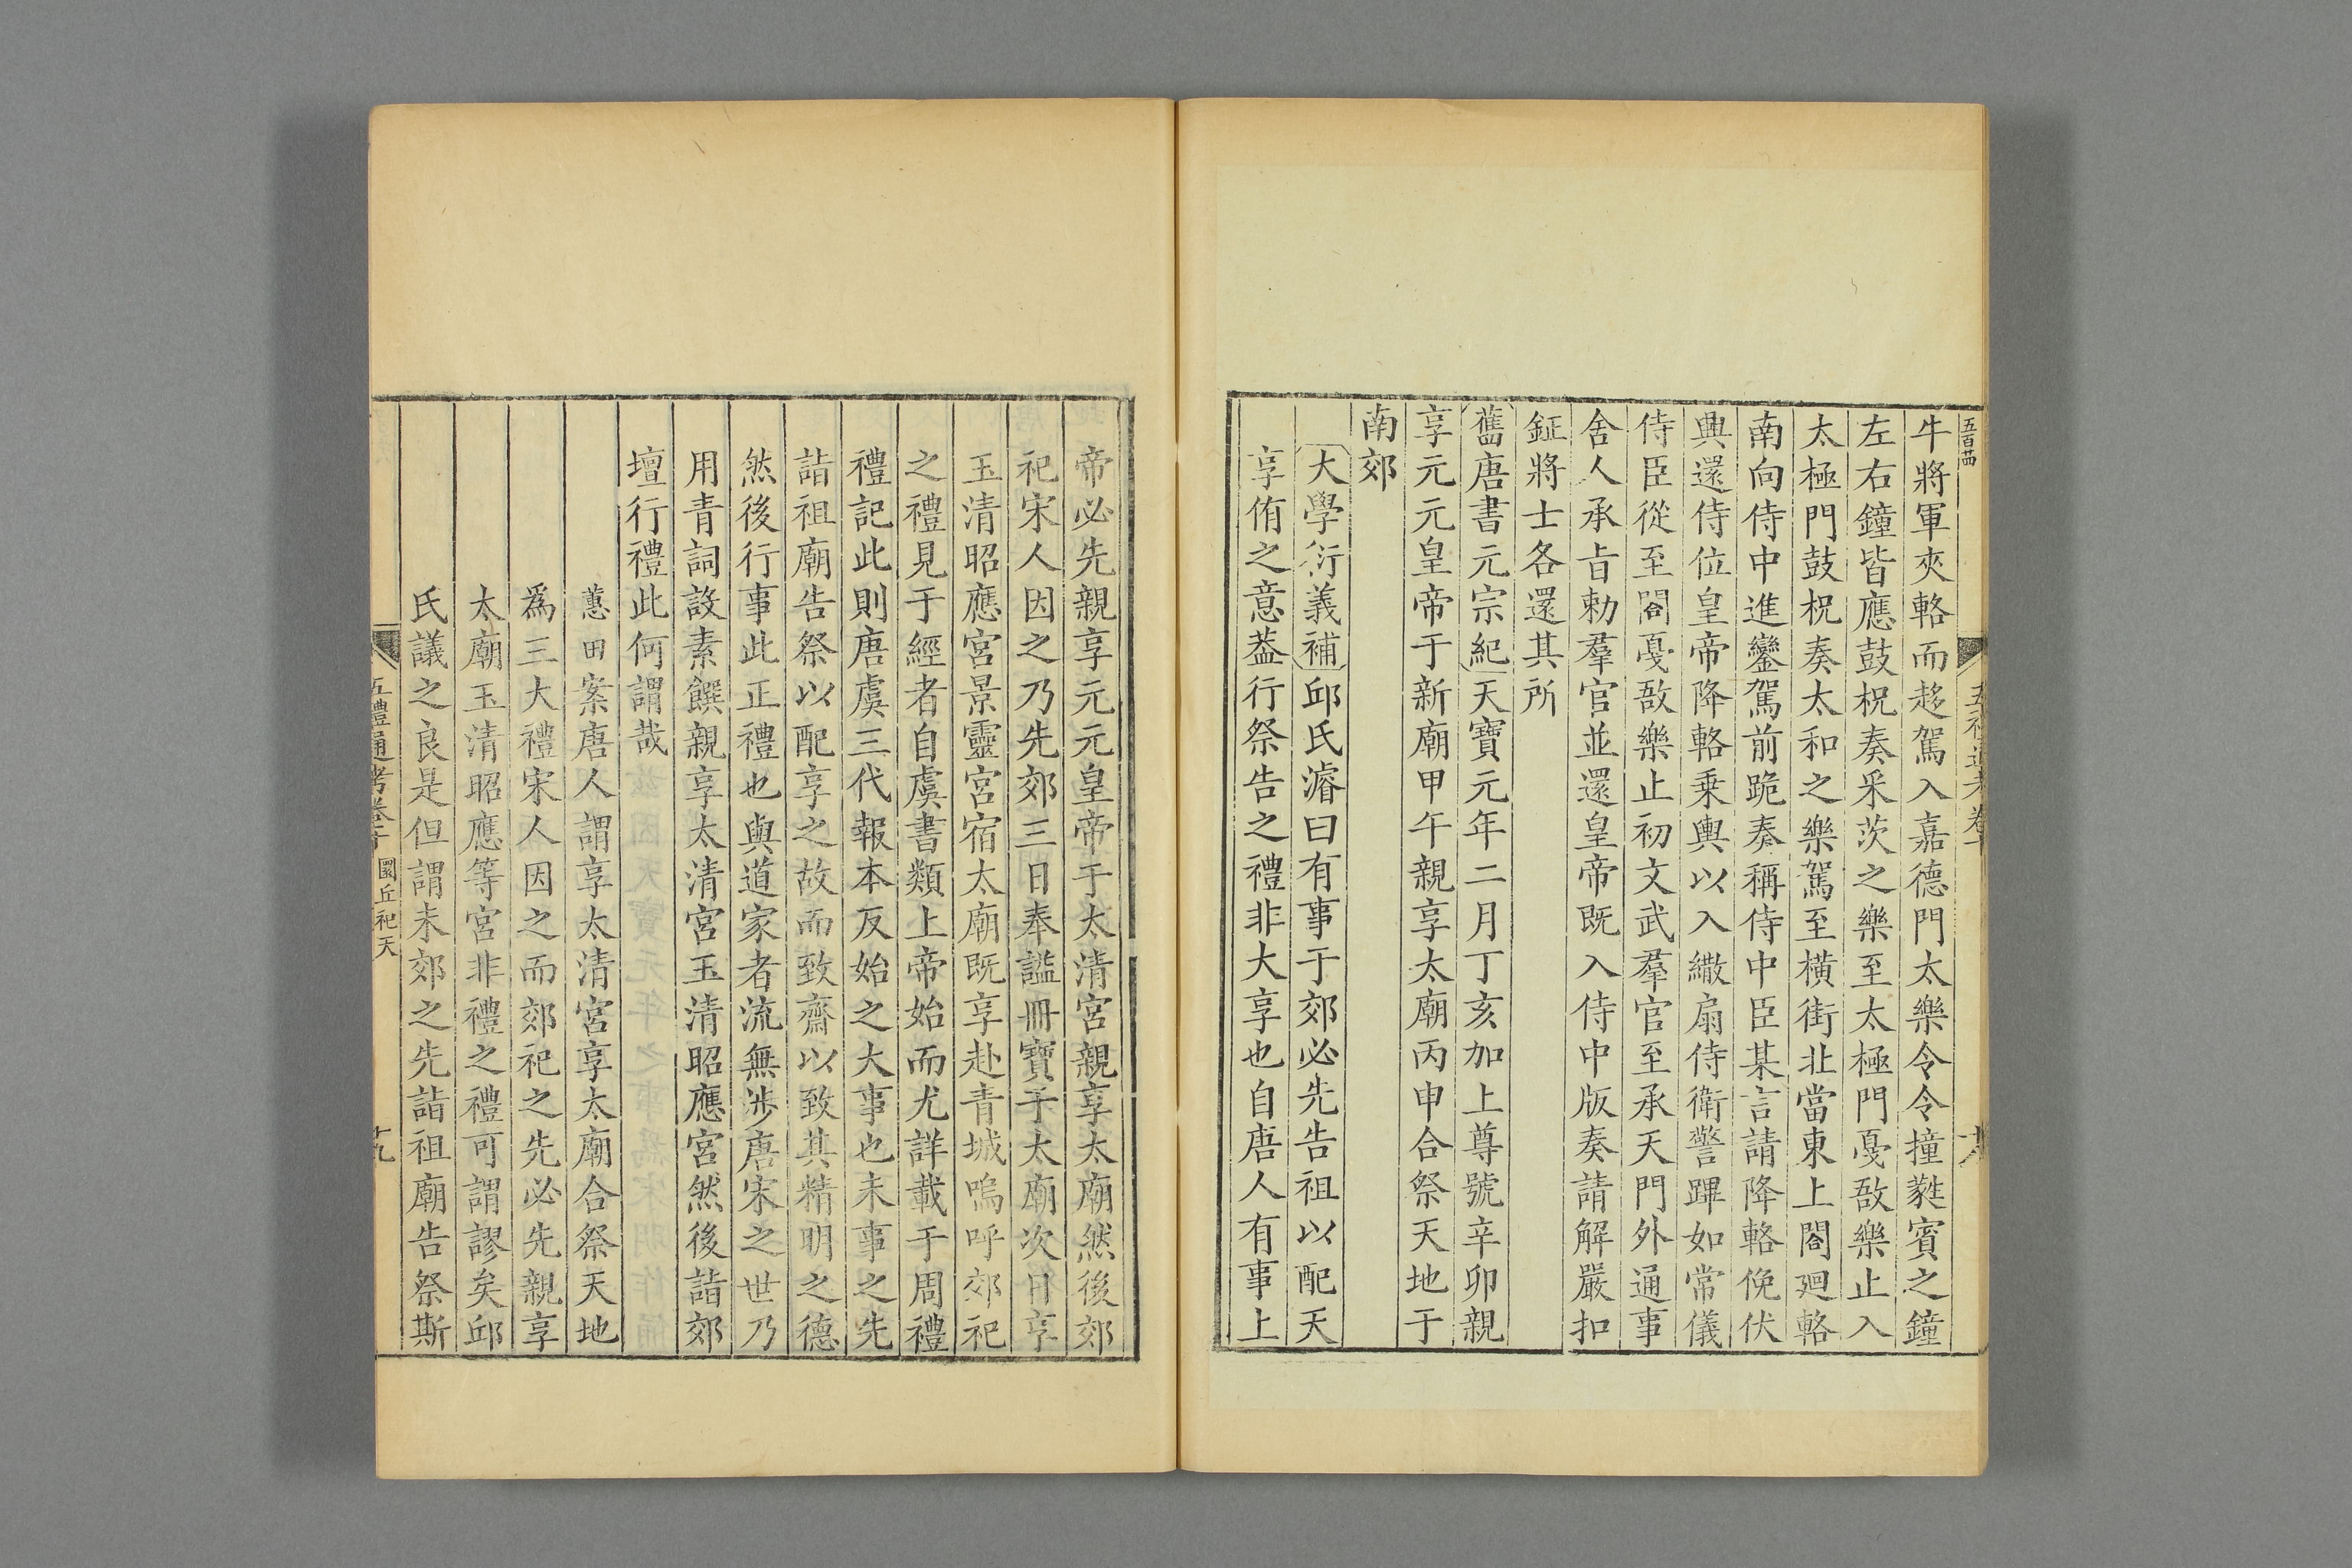 牛將軍夾輅而趍駕入嘉德門太樂令令撞蕤賓之鐘
左右鐘皆應鼓柷奏采茨之樂至太極門戛敔樂止入
太極門鼓柷奏太和之樂駕至橫街北當東上閤廻輅
南向侍中進鑾駕前跪奏稱侍中臣某言請降輅俛伏
興還侍位皇帝降輅乗輿以入繖扇侍衛警蹕如常儀
侍臣從至閤戛敔樂止初文武羣官至承天門外通事
舍人承㫖勅羣官並還皇帝既入侍中版奏請解嚴扣
鉦將士各還其所
舊唐書元宗紀天寶元年二月丁亥加上尊號辛卯親
享元元皇帝于新廟甲午親享太廟丙申合祭天地于
南郊
大學衍義補邱氏濬曰有事于郊必先告祖以配天
享侑之意葢行祭告之禮非大享也自唐人有事上
帝必先親享元元皇帝于太清宮親享太廟然後郊
祀宋人因之乃先郊三日奉謚冊寶于太廟次日享
玉清昭應宮景靈宮宿太廟既享赴青城嗚呼郊祀
之禮見于經者自虞書類上帝始而尤詳載于周禮
禮記此則唐虞三代報本反始之大事也未事之先
詣祖廟告祭以配享之故而致齋以致其精明之德
然後行事此正禮也與道家者流無涉唐宋之世乃
用青詞設素饌親享太清宮玉清昭應宮然後詣郊
壇行禮此何謂哉
蕙田案唐人謂享太清宮享太廟合祭天地
爲三大禮宋人因之而郊祀之先必先親享
太廟玉清昭應等宮非禮之禮可謂謬矣邱
氏議之良是但謂未郊之先詣祖廟告祭斯
五禮通考卷十 圜丘祀天